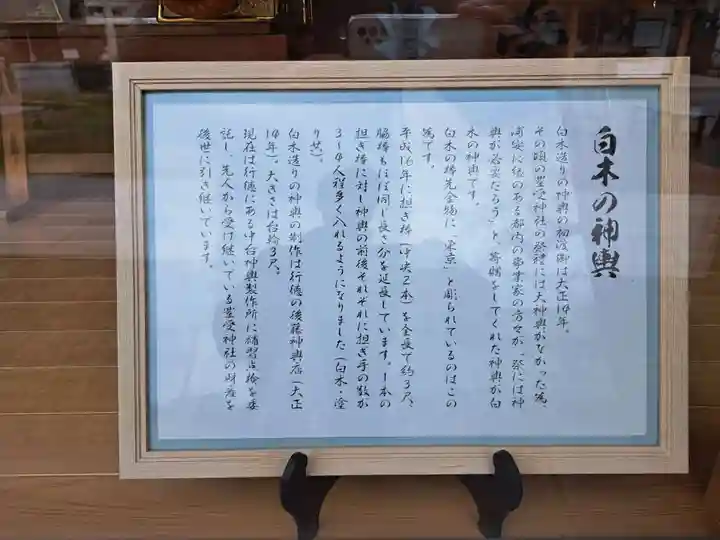 白木の神輿
白木造りの神輿の初渡御は大正14年。
その頃の豊受神社の祭礼には大神輿がなかった為
浦安に縁のある都内の事業家の方々が、「祭には神
輿が必要だろう」と、寄贈をしてくれた神輿が白
木の神輿です。
白木の棒先金物に「東京」と彫られているのはこの
為です。
平成16年に担ぎ棒（中央2本）を全長で約3尺、
脇棒もほぼ同じ長さ分を延長しています。1本の
担ぎ棒に対し神輿の前後それぞれに担ぎ手の数が
3〜4人程多く入れるようになりました（白木・塗
り共）。
白木造りの神輿の制作は行徳の後藤神輿店（大正
14年）。大きさは台輪3尺。
現在は行徳にある中台神輿製作所に補習点検を委
託し、先人から受け継いでいる豊受神社の財産を
後世に引き継いでいます。